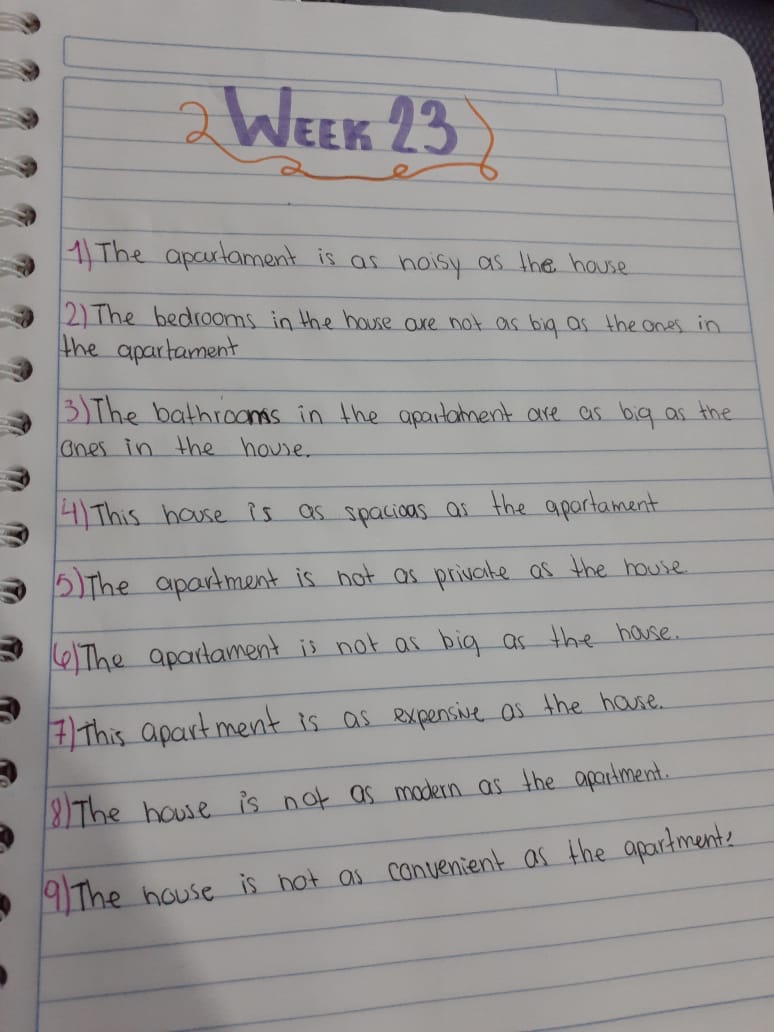 WEEK 23
1) The apartament is as noisy as the house
2) The bedrooms in the house are not as big as the ones in
the apartament
3) The bathrooms in the apartament are as big as the
ones in the house.
4) This house is as spacioas as the apartament
5) The apartment is not as private as the house.
6) The apartament is not as big as the house.
7) This apartment is as expensive as the house.
8) The house is not as modern as the apartment.
9) The house is not as convenient as the apartment.